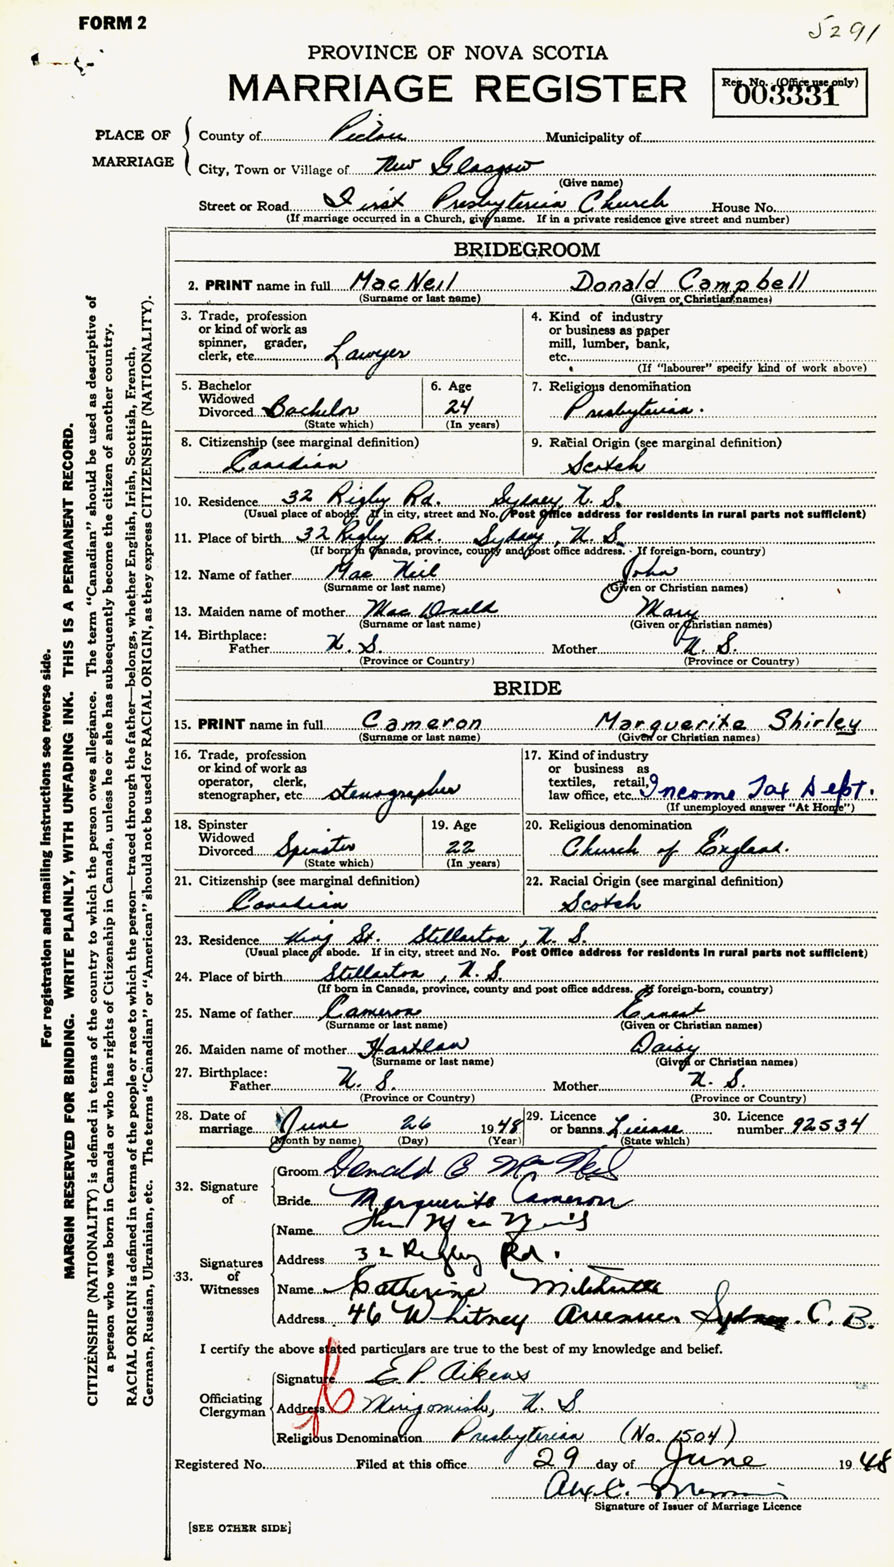 FORM 2
5291
PROVINCE OF NOVA SCOTIA
MARRIAGE REGISTER
Reg. No. (Office use only)
003331
PLACE OF MARRIAGE
County of Pictou Municipality of
City, Town or Village of New Glasgow
(Give name)
Street or Road First Presbyterian Church House No.
(If marriage occurred in a Church, give name. If in a private residence give street and number)
BRIDEGROOM
2. PRINT name in full MacNeil Donald Campbell
(Surname or last name) (Given or Christian names)
3. Trade, profession or kind of work as spinner, grader, clerk, etc. Lawyer
4. Kind of industry or business as paper mill, lumber, bank, etc.
(If "labourer" specify kind of work above)
5. Bachelor Widowed Divorced Bachelor
(State which)
6. Age 24
(In years)
7. Religious denomination
Presbyterian.
8. Citizenship (see marginal definition)
Canadian
9. Racial Origin (see marginal definition)
Scotch
10. Residence 32 Rigby Rd. Sydney, N. S.
(Usual place of abode. If in city, street and No. Post Office address for residents in rural parts not sufficient)
11. Place of birth 32 Rigby Rd. Sydney, N. S.
(If born in Canada, province, county and post office address. If foreign-born, country)
12. Name of father Mac Neil John
(Surname or last name) (Given or Christian names)
13. Maiden name of mother Mac Donald Mary
(Surname or last name) (Given or Christian names)
14. Birthplace:
Father N. S. Mother N. S.
(Province or Country) (Province or Country)
BRIDE
15. PRINT name in full Cameron Marguerite Shirley
(Surname or last name) (Given or Christian names)
16. Trade, profession or kind of work as operator, clerk, stenographer, etc. stenographer
17. Kind of industry or business as textiles, retail, law office, etc. Income Tax Dept.
(If unemployed answer "At Home")
18. Spinster Widowed Divorced Spinster
(State which)
19. Age 22
(In years)
20. Religious denomination
Church of England.
21. Citizenship (see marginal definition)
Canadian
22. Racial Origin (see marginal definition)
Scotch
23. Residence King St. Stellarton, N. S.
(Usual place of abode. If in city, street and No. Post Office address for residents in rural parts not sufficient)
24. Place of birth Stellarton, N. S.
(If born in Canada, province, county and post office address. If foreign-born, country)
25. Name of father Cameron Ernest
(Surname or last name) (Given or Christian names)
26. Maiden name of mother Daisy
(Surname or last name) (Given or Christian names)
27. Birthplace:
Father N. S. Mother N. S.
(Province or Country) (Province or Country)
28. Date of marriage June 26 1948
(Month by name) (Day) (Year)
29. Licence or banns License
(State which)
30. Licence number 92534
32. Signature of
Groom Donald C MacNeil
Bride Marguerite Cameron
33. Signatures of Witnesses
Name
Address 32 Rigby Rd.
Name Catherine
Address 46 Whitney Avenue, Sydney. C. B.
I certify the above stated particulars are true to the best of my knowledge and belief.
Officiating Clergyman
Signature E. P. Aikens
Address Merigomish, N. S.
Religious Denomination Presbyterian (No. 1504)
Registered No. Filed at this office 29 day of June 1948
Signature of Issuer of Marriage Licence
[SEE OTHER SIDE]
For registration and mailing instructions see reverse side.
MARGIN RESERVED FOR BINDING. WRITE PLAINLY, WITH UNFADING INK. THIS IS A PERMANENT RECORD.
CITIZENSHIP (NATIONALITY) is defined in terms of the country to which the person owes allegiance. The term "Canadian" should be used as descriptive of
a person who was born in Canada or who has rights of Citizenship in Canada, unless he or she has subsequently become the citizen of another country.
RACIAL ORIGIN is defined in terms of the people or race to which the person—traced through the father—belongs, whether English, Irish, Scottish, French,
German, Russian, Ukrainian, etc. The terms "Canadian" or "American" should not be used for RACIAL ORIGIN, as they express CITIZENSHIP (NATIONALITY).